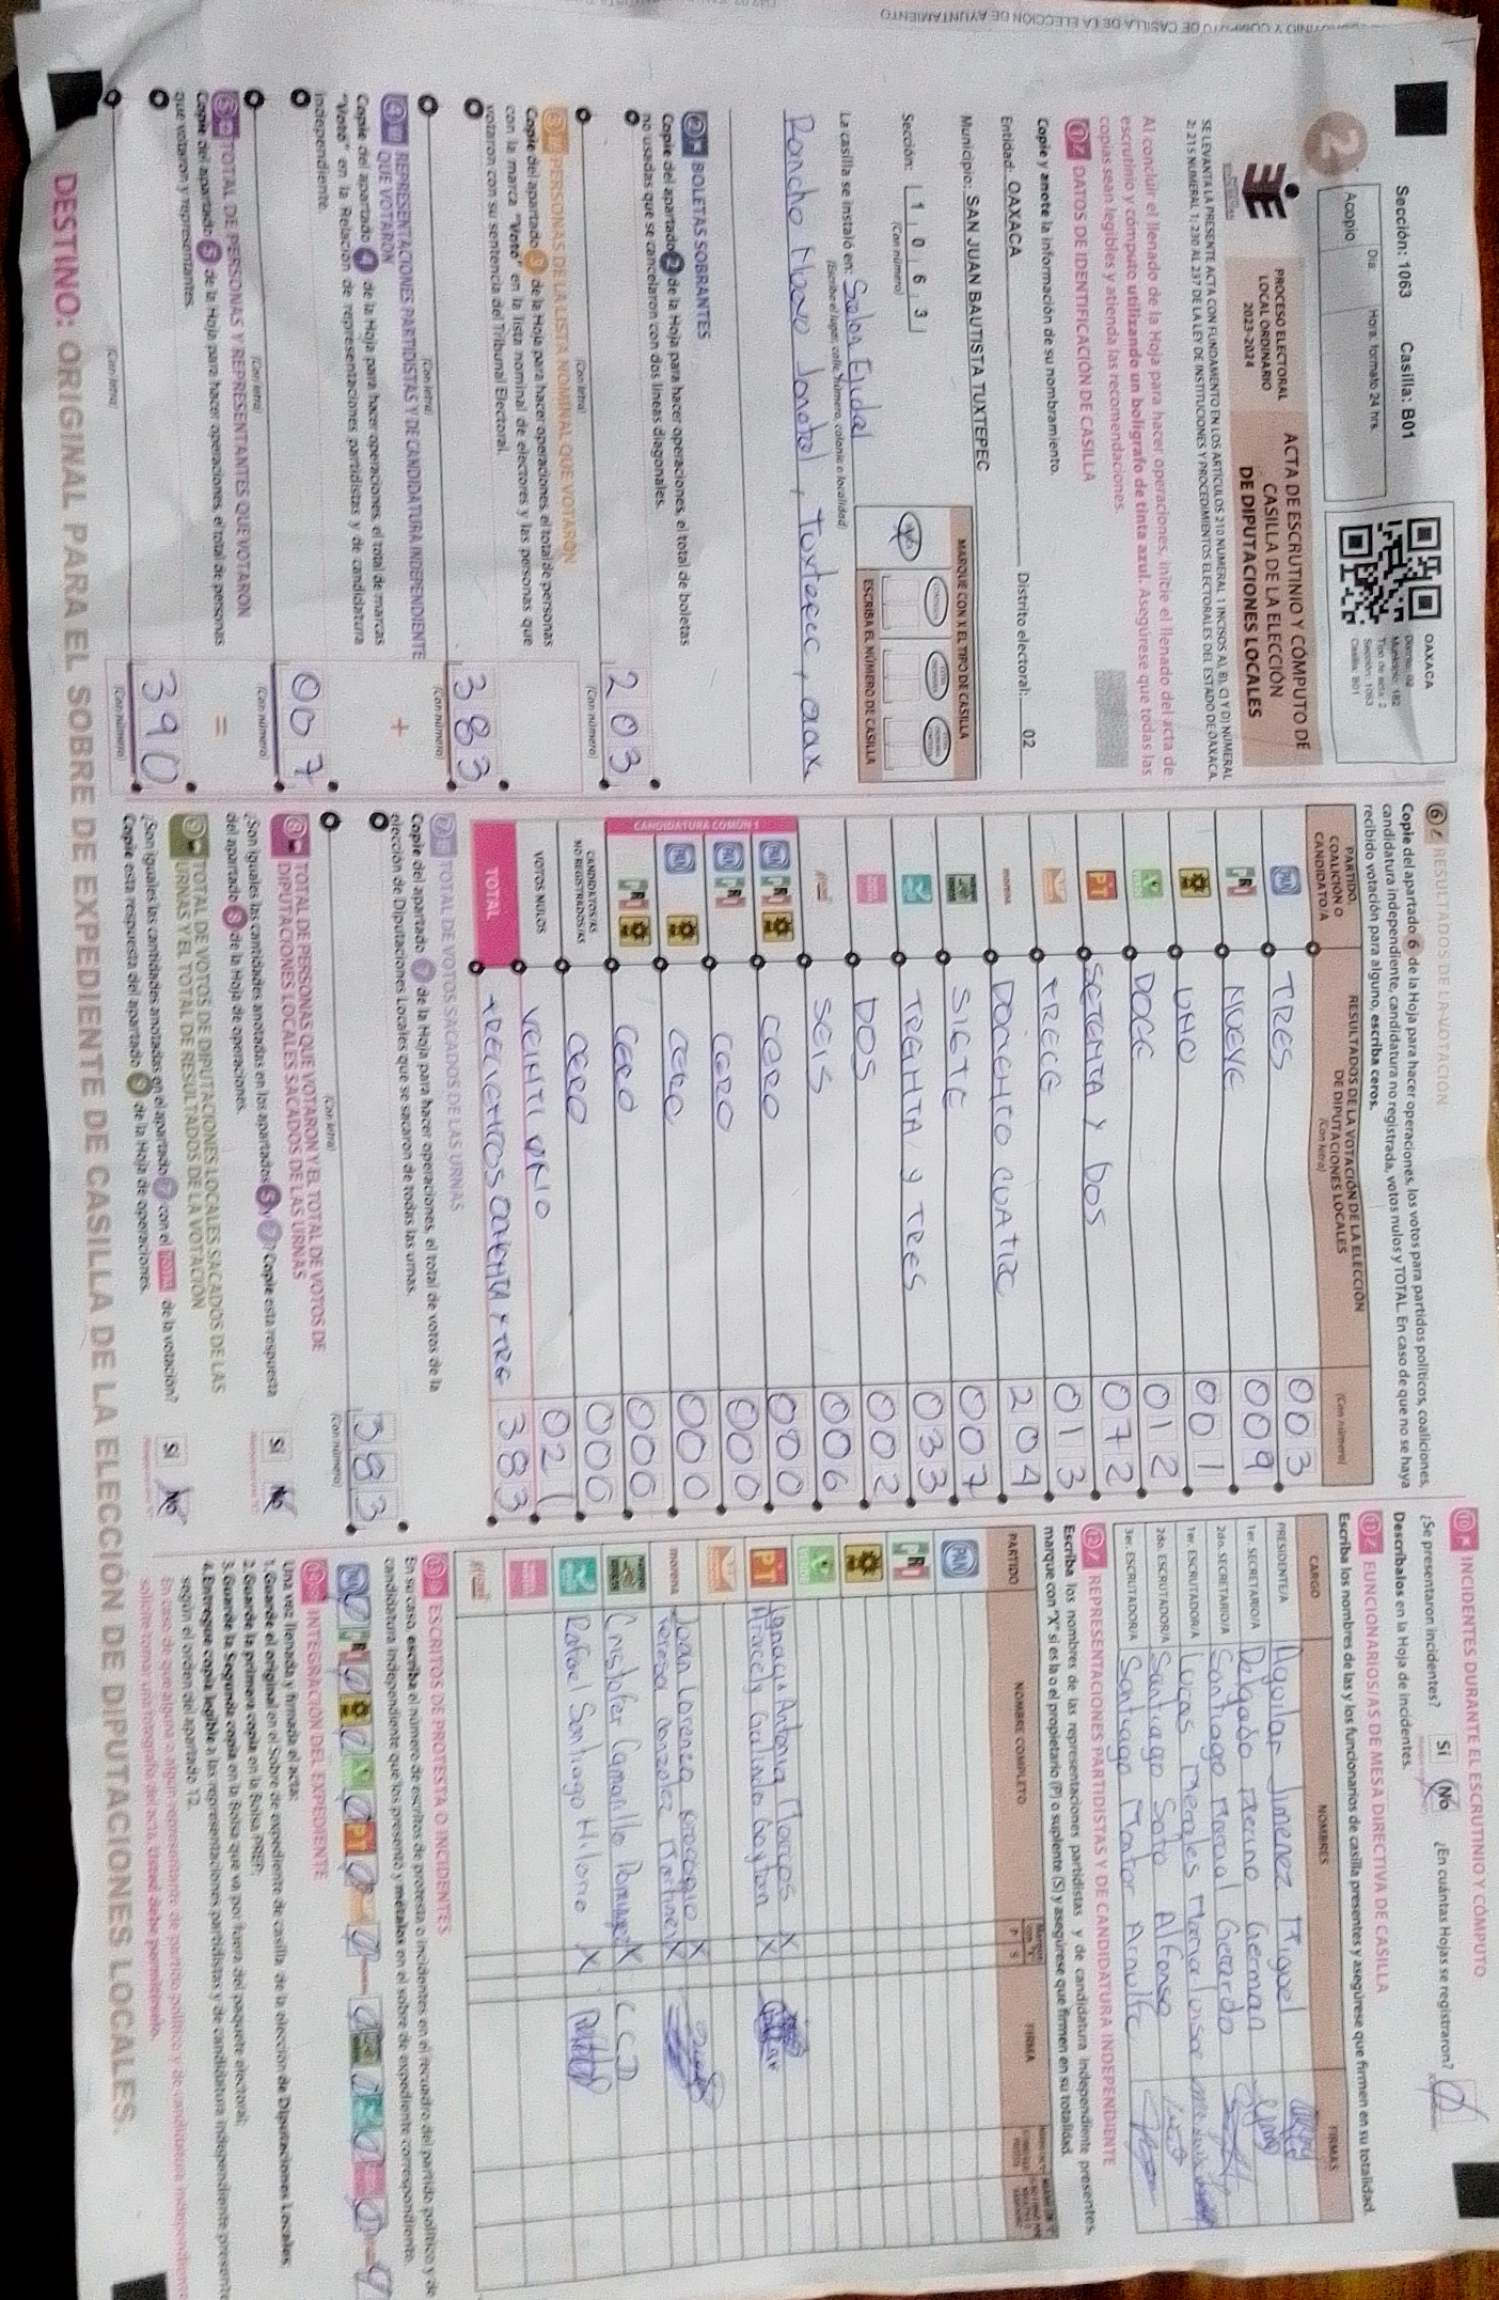 Sección: 1063 Casilla: B01
OAXACA
Distrito: 02
Municipio: 182
Tipo de acta: 2
Sección: 1063
Casilla: B01
2
Acopio
Día: Hora: formato 24 hrs.
PROCESO ELECTORAL
LOCAL ORDINARIO
2023-2024
ACTA DE ESCRUTINIO Y CÓMPUTO DE
CASILLA DE LA ELECCIÓN
DE DIPUTACIONES LOCALES
SE LEVANTA LA PRESENTE ACTA CON FUNDAMENTO EN LOS ARTÍCULOS 210 NUMERAL 1 INCISOS A), B), C) Y D) NUMERAL
2; 215 NUMERAL 1; 230 AL 237 DE LA LEY DE INSTITUCIONES Y PROCEDIMIENTOS ELECTORALES DEL ESTADO DE OAXACA.
Al concluir el llenado de la Hoja para hacer operaciones, inicie el llenado del acta de
escrutinio y cómputo utilizando un bolígrafo de tinta azul. Asegúrese que todas las
copias sean legibles y atienda las recomendaciones.
1 DATOS DE IDENTIFICACIÓN DE CASILLA
Copie y anote la información de su nombramiento.
Entidad: OAXACA Distrito electoral: 02
Municipio: SAN JUAN BAUTISTA TUXTEPEC
Sección: 1 0 6 3
(Con número)
MARQUE CON X EL TIPO DE CASILLA
ESCRIBA EL NÚMERO DE CASILLA
La casilla se instaló en: Salon Ejidal
(Escriba el lugar, calle, número, colonia o localidad)
Rancho Nuevo Jonotal, Tuxtepec, oax.
2 BOLETAS SOBRANTES
Copie del apartado 2 de la Hoja para hacer operaciones, el total de boletas
no usadas que se cancelaron con dos líneas diagonales.
203
(Con letra) (Con número)
3 PERSONAS DE LA LISTA NOMINAL QUE VOTARON
Copie del apartado 3 de la Hoja para hacer operaciones, el total de personas
con la marca "Votó" en la lista nominal de electores y las personas que
votaron con su sentencia del Tribunal Electoral.
383
(Con letra) (Con número)
4 REPRESENTACIONES PARTIDISTAS Y DE CANDIDATURA INDEPENDIENTE
QUE VOTARON
+
Copie del apartado 4 de la Hoja para hacer operaciones, el total de marcas
"Votó" en la Relación de representaciones partidistas y de candidatura
independiente.
007
(Con letra) (Con número)
5 TOTAL DE PERSONAS Y REPRESENTANTES QUE VOTARON
=
Copie del apartado 5 de la Hoja para hacer operaciones, el total de personas
que votaron y representantes.
390
(Con letra) (Con número)
6 RESULTADOS DE LA VOTACIÓN
Copie del apartado 6 de la Hoja para hacer operaciones, los votos para partidos políticos, coaliciones,
candidatura independiente, candidatura no registrada, votos nulos y TOTAL. En caso de que no se haya
recibido votación para alguno, escriba ceros.
PARTIDO, COALICIÓN O CANDIDATO/A
RESULTADOS DE LA VOTACIÓN DE LA ELECCIÓN
DE DIPUTACIONES LOCALES
(Con letra) (Con número)
PAN TRES 003
PRI NUEVE 009
UNO 001
DOCE 012
PT SETENTA Y DOS 072
TRECE 013
morena DOCIENTO CUATRO 204
SIETE 007
TREINTA Y TRES 033
DOS 002
SEIS 006
CANDIDATURA COMÚN 1
PAN PRI CERO 000
PAN PRI CERO 000
PAN CERO 000
PRI CERO 000
CANDIDATOS/AS
NO REGISTRADOS/AS CERO 000
VOTOS NULOS VEINTI UNO 021
TOTAL TRECIENTOS OCHENTA Y TRE 383
7 TOTAL DE VOTOS SACADOS DE LAS URNAS
Copie del apartado 7 de la Hoja para hacer operaciones, el total de votos de la
elección de Diputaciones Locales que se sacaron de todas las urnas.
383
(Con letra) (Con número)
8 TOTAL DE PERSONAS QUE VOTARON Y EL TOTAL DE VOTOS DE
DIPUTACIONES LOCALES SACADOS DE LAS URNAS
¿Son iguales las cantidades anotadas en los apartados 5 y 7? Copie esta respuesta
del apartado 8 de la Hoja de operaciones.
Sí No
9 TOTAL DE VOTOS DE DIPUTACIONES LOCALES SACADOS DE LAS
URNAS Y EL TOTAL DE RESULTADOS DE LA VOTACIÓN
¿Son iguales las cantidades anotadas en el apartado 7 con el TOTAL de la votación?
Copie esta respuesta del apartado 9 de la Hoja de operaciones.
Sí No
10 INCIDENTES DURANTE EL ESCRUTINIO Y CÓMPUTO
¿Se presentaron incidentes? Sí No ¿En cuántas Hojas se registraron?
Descríbalos en la Hoja de incidentes.
11 FUNCIONARIOS/AS DE MESA DIRECTIVA DE CASILLA
Escriba los nombres de las y los funcionarios de casilla presentes y asegúrese que firmen en su totalidad.
CARGO NOMBRES FIRMAS
PRESIDENTE/A Aguilar Jimenez Miguel
1er. SECRETARIO/A Delgado Merino German
2do. SECRETARIO/A Santiago Marcial Gerardo
1er. ESCRUTADOR/A Lucas Merales Maria Luisa
2do. ESCRUTADOR/A Santiago Soto Alfonso
3er. ESCRUTADOR/A Santiago Montor Arnulfo
12 REPRESENTACIONES PARTIDISTAS Y DE CANDIDATURA INDEPENDIENTE
Escriba los nombres de las representaciones partidistas y de candidatura independiente presentes,
marque con "X" si es la o el propietario (P) o suplente (S) y asegúrese que firmen en su totalidad.
PARTIDO NOMBRE COMPLETO P S FIRMA
PAN
PRI
PT Ignacia Antonia Marcos X
Aracely Galindo Gaytan X
morena Juan Lorenzo Procopio X
Teresa Gonzalez Martinez X
Cristofer Camarillo X CCD
Rafael Santiago Hilario X
13 ESCRITOS DE PROTESTA O INCIDENTES
En su caso, escriba el número de escritos de protesta o incidentes en el recuadro del partido político y de
candidatura independiente que los presentó y métalos en el sobre de expediente correspondiente.
INTEGRACIÓN DEL EXPEDIENTE
Una vez llenada y firmada el acta:
1. Guarde el original en el Sobre de expediente de casilla de la elección de Diputaciones Locales.
2. Guarde la primera copia en la Bolsa PREP.
3. Guarde la Segunda copia en la Bolsa que va por fuera del paquete electoral.
4. Entregue copia legible a las representaciones partidistas y de candidatura independiente presentes
según el orden del apartado 12.
En caso de que alguna o algún representante de partido político y de candidatura independiente
solicite tomar una fotografía del acta, Usted debe permitírselo.
DESTINO: ORIGINAL PARA EL SOBRE DE EXPEDIENTE DE CASILLA DE LA ELECCIÓN DE DIPUTACIONES LOCALES.